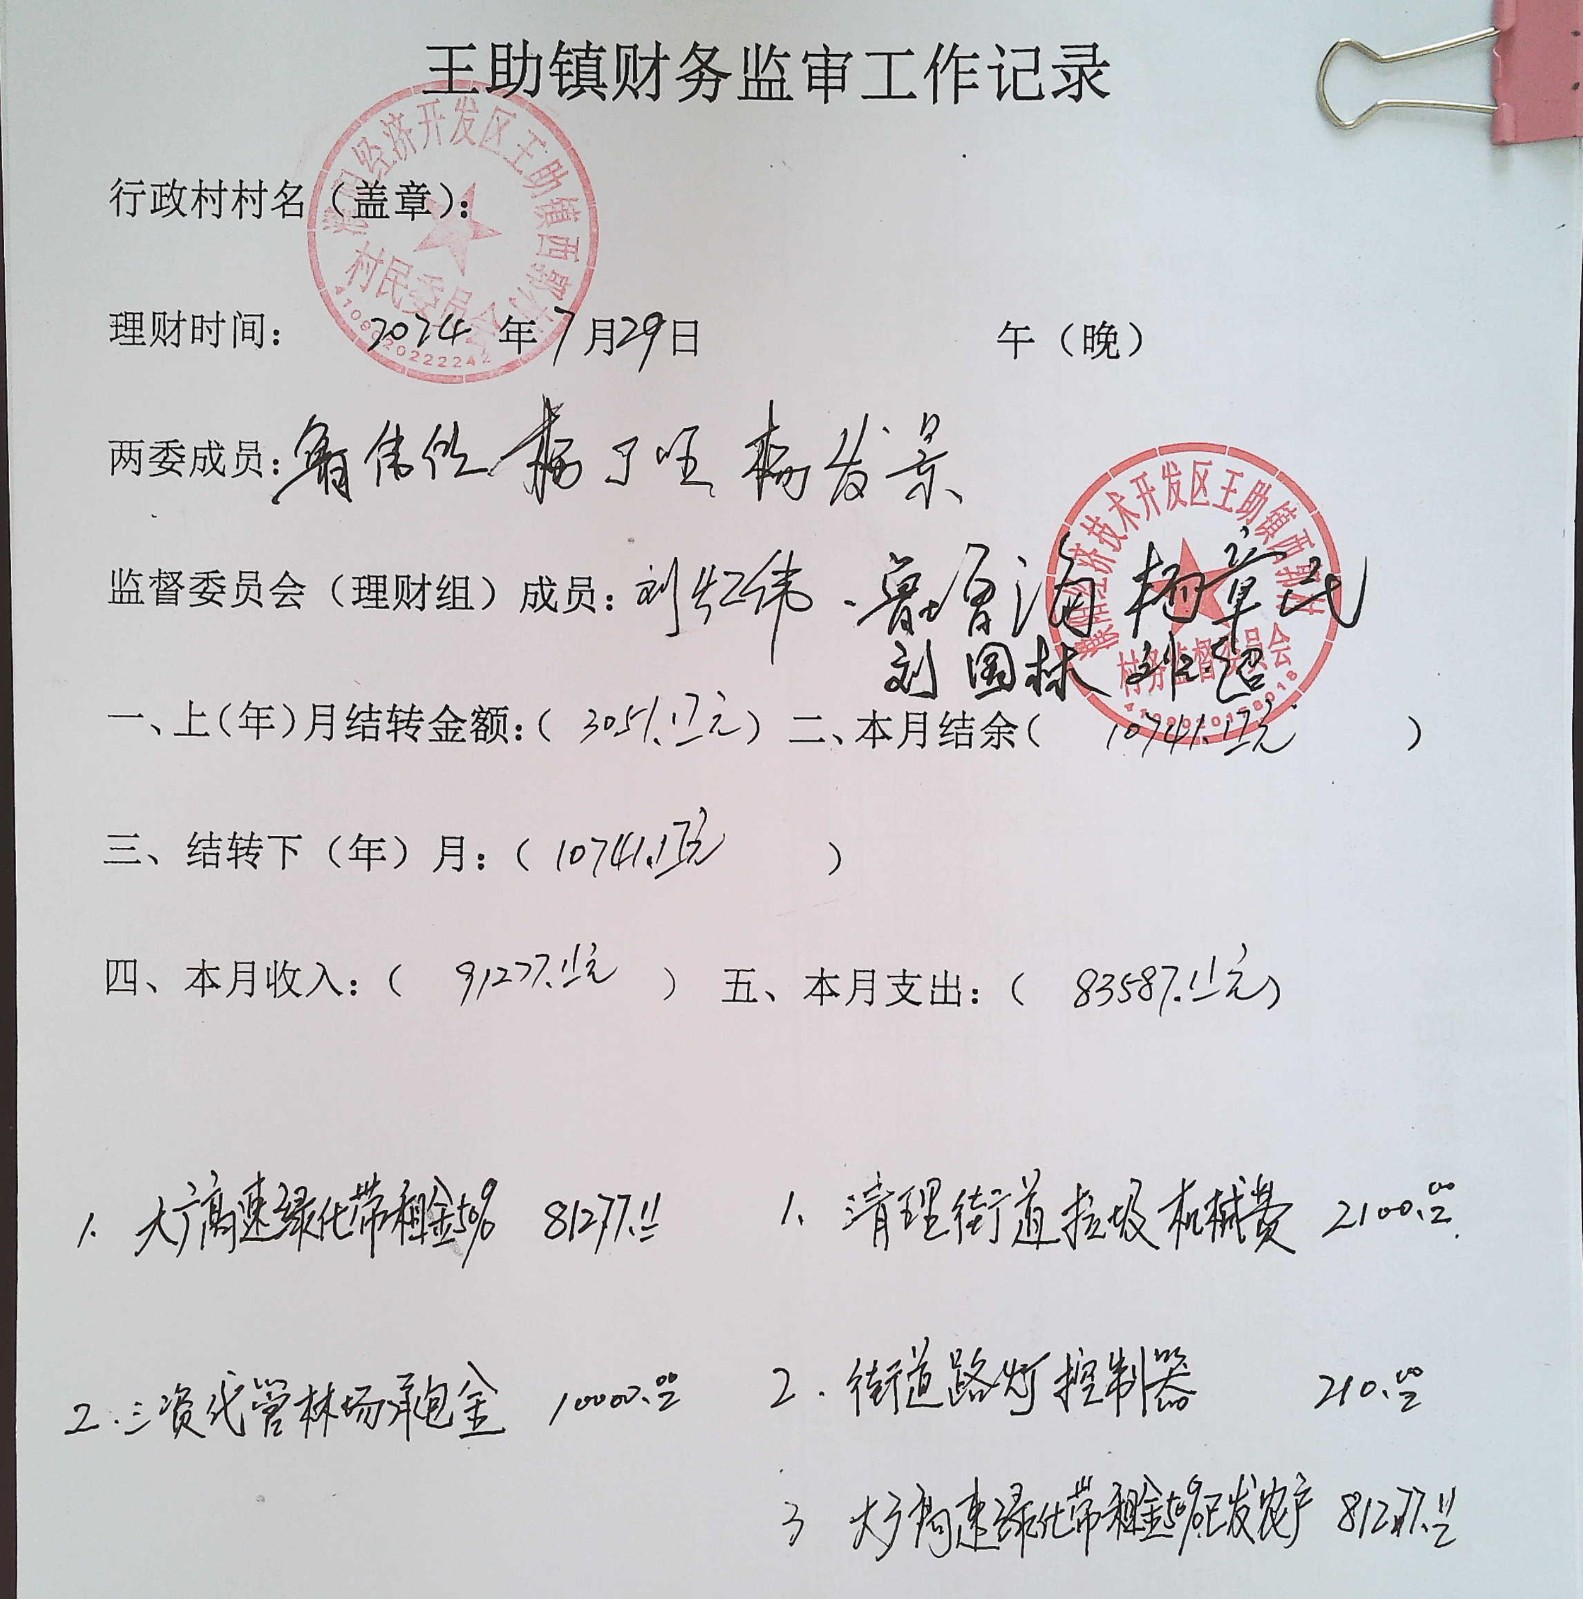 王助镇财务监审工作记录
行政村村名（盖章）：
经济开发区王助镇西郭村
村民委员会
4109020222242
理财时间： 2024 年 7 月 29 日 午（晚）
两委成员：鲁伟 杨 旺 杨发景
监督委员会（理财组）成员：刘红伟、鲁增海 杨章民
刘国林 超
濮阳经济技术开发区王助镇西郭村
村务监督委员会
一、上（年）月结转金额：（3051.17元）二、本月结余（ 10741.17元 ）
三、结转下（年）月：（10741.17元 ）
四、本月收入：（ 91277.11元 ） 五、本月支出：（ 83587.11元）
1、大广高速绿化带租金50% 81277.11 1、清理街道垃圾机械费 2100.00
2、三资代管林场承包金 10000.00 2、街道路灯控制器 210.00
3 大广高速绿化带租金50%已发农户 81277.11